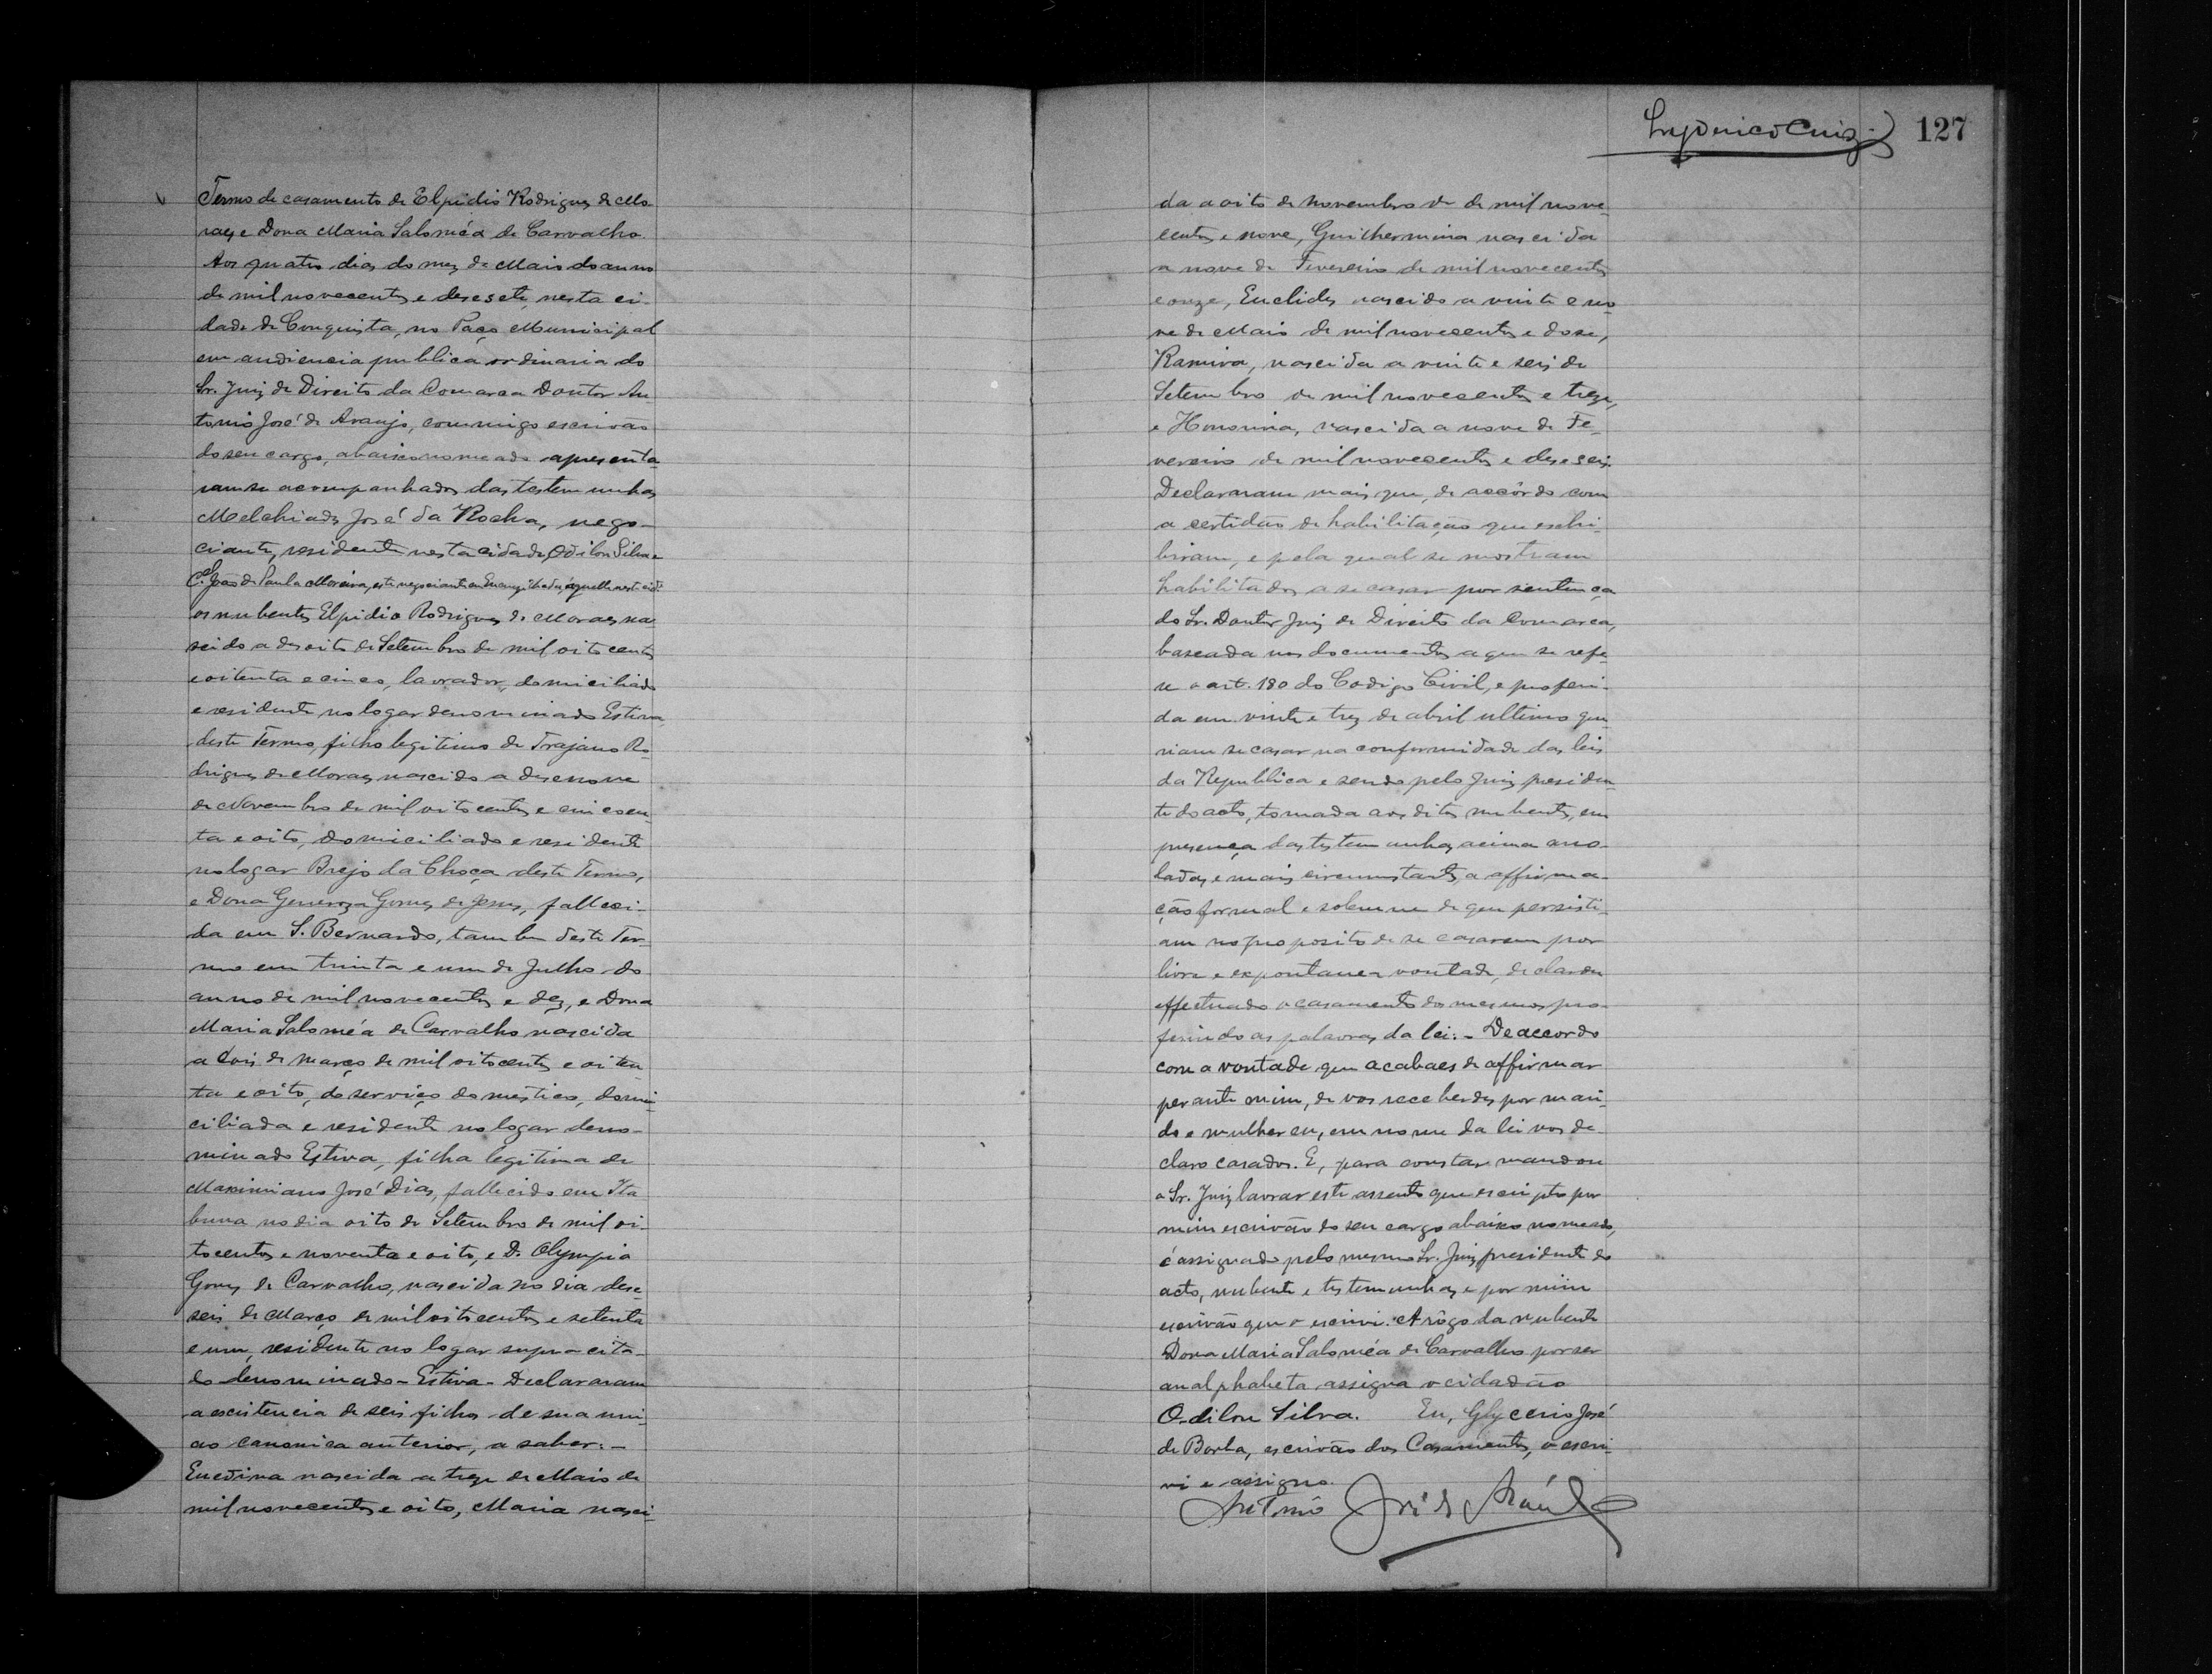 Termo de casamento de Elpidio Rodrigues de Mo-
raes e Dona Maria Saloméa de Carvalho.
Aos quatro dias do mez de Maio do anno
de mil novecentos e desesete, nesta ci-
dade de Conquista, no Paço Municipal
em audiencia publica ordinaria do
Sr. Juiz de Direito da Comarca Doutor An
tonio José de Araujo, commigo escrivão
do seu cargo, abaixo nomeado apresenta
ram-se acompanhados das testemunhas
Melchiades José da Rocha, nego-
ciante, residente nesta cidade, Odilon Silva e
Cel. João de Paula Moreira, este negociante em aquelle nesta cid.
os nubentes Elpidio Rodrigues de Moraes nas
cido a desoito de Setembro de mil oitocentos
e oitenta e cinco, lavrador, domiciliado
e residente no logar denominado Estiva,
deste Termo, filho legitimo de Trajano Ro
drigues de Moraes nascido a desenove
de Novembro de mil oitocentos e cincoen-
ta e oito, domiciliado e residente
no logar Brejo da Choça deste Termo,
e Dona Generoza Gomes de Jesus, falleci-
da em S. Bernardo, tambem deste Ter-
mo em trinta e um de Julho do
anno de mil novecentos e dez, e Dona
Maria Saloméa de Carvalho nascida
a dois de março de mil oitocentos e oiten
ta e oito, do serviço domestico, domi-
ciliada e residente no logar deno-
minado Estiva, filha legitima de
Maximiano José Dias, fallecido em Ita
buna no dia oito de Setembro de mil oi-
tocentos e noventa e oito, e D. Olympia
Gomes de Carvalho, nascida no dia dese-
seis de Março de mil oitocentos e setenta
e um, residente no logar supra-cita-
do denominado - Estiva - Declararam
a existencia de seis filhos de sua uni-
ao canonica anterior, a saber: -
Enedina nascida a treze de Maio de
mil novecentos e oito, Maria nasci-
Lyderico Cruz
127
da a oito de novembro de de mil nove-
centos e nove, Guilhermina nascida
a nove de Fevereiro de mil novecentos
e onze, Euclides nascido a vinte e no-
ve de Maio de mil novecentos e dose,
Ramira, nascida a vinte e seis de
Setembro de mil novecentos e treze,
e Honorina, nascida a nove de Fe-
vereiro de mil novecentos e deseseis.
Declararam mais que, de accôrdo com
a certidão de habilitação que exhi-
biram, e pela qual se mostram
habilitados a se casar por sentença
do Sr. Doutor Juiz de Direito da Comarca,
baseada nos documentos a que se refe-
re o art. 180 do Codigo Civil, e proferi-
da em vinte e tres de abril ultimo que
riam se casar na conformidade das leis
da Republica e sendo pelo Juiz presiden-
te do acto, tomada aos ditos nubentes, em
presença das testemunhas acima arro-
ladas e mais circumstantes, a affirma-
ção formal e solemne de que persisti-
am no proposito de se casarem por
livre e expontanea vontade, declarou
effectuado o casamento dos mesmos pro-
ferindo as palavras da lei: - De accordo
com a vontade que acabaes de affirmar
perante mim, de vos receberdes por mari-
do e mulher eu, em nome da lei vos de-
claro casados. E, para constar mandou
o Sr. Juiz lavrar este assento que escripto por
mim escrivão do seu cargo abaixo nomeado,
é assignado pelo mesmo Sr. Juiz presidente do
acto, nubente e testemunhas e por mim
escrivão que o escrivi. A rôgo da nubente
Dona Maria Saloméa de Carvalho por ser
analphabeta assigna o cidadão
Odilon Silva. Eu, Glycerio José
de Borba, escrivão dos Casamentos, o escri-
vi e assigno.
Antonio José de Araújo